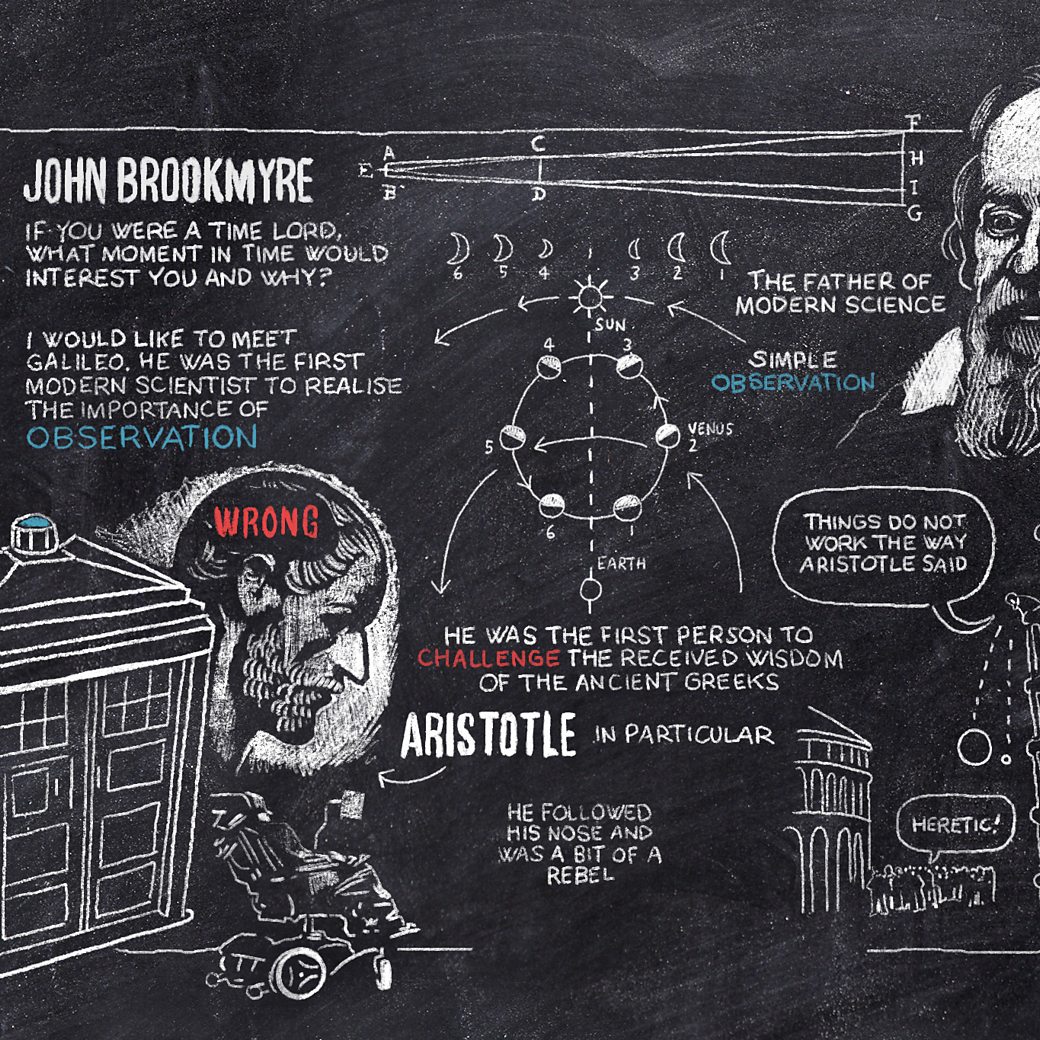 JOHN BROOKMYRE
IF YOU WERE A TIME LORD,
WHAT MOMENT IN TIME WOULD
INTEREST YOU AND WHY?
I WOULD LIKE TO MEET
GALILEO. HE WAS THE FIRST
MODERN SCIENTIST TO REALISE
THE IMPORTANCE OF
OBSERVATION
WRONG
A
E
B
C
D
F
H
I
G
6 5 4 3 2 1
SUN
4 3
5
VENUS
2
6 1
EARTH
THE FATHER OF
MODERN SCIENCE
SIMPLE
OBSERVATION
THINGS DO NOT
WORK THE WAY
ARISTOTLE SAID
HE WAS THE FIRST PERSON TO
CHALLENGE THE RECEIVED WISDOM
OF THE ANCIENT GREEKS
ARISTOTLE IN PARTICULAR
HE FOLLOWED
HIS NOSE AND
WAS A BIT OF A
REBEL
HERETIC!